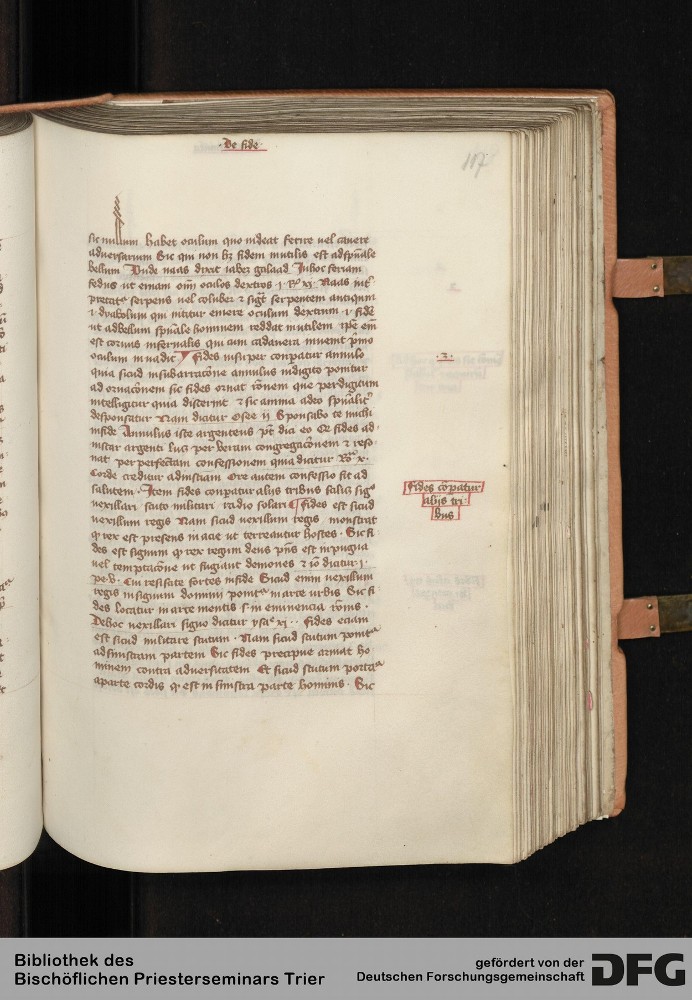 ·De fide·
117
sic nullum habet oculum quo videat ferire uel cauere
aduersarium Sic qui non hʒ fidem inutilis est ad spūale
bellum Vnde naas dixit iabes galaad In hoc feriam
fedus ut eruam om̄ oculos dextros i Rº xi Naas int̾
pretatᵉ serpens uel coluber ⁊ sigᵗ serpentem antiquum
i dyabolum qui nititur eruere oculum dextrum i fidē
ut ad bellum spūale hominem reddat inutilem ipe em̄
est coruus infernalis qui cum cadauera inuenit p̄mo
oculum inuadit fides insuper conparatur annulo
quia sicud in subarracōne annulus in digito ponitur
ad ornacōnem sic fides ornat rōnem que per digitum
intelligitur quia discernit ⁊ sic anima a deo spūalit̾
desponsatur Nam dicitur Osee ij Sponsabo te michi
in fide Annulus iste argenteus pōt dici eo qꝫ fides ad
instar argenti luꝫ per veram congregacōnem ⁊ reso
nat per perfectam confessionem quia dicitur Roº x·
Corde creditur ad iusticiam Ore autem confessio fit ad
salutem · Item fides conparatur alijs tribus scilicꝫ sigº
vexillari scuto militari radio solari fides est sicud
vexillum regis Nam sicud vexillum regis monstrat
qꝫ rex est presens in acie ut terreantur hostes · Sic fi
des est signum qꝫ rex regum deus p̄ns est in pugna
uel temptacōne ut fugiant demones ⁊ iō dicitur j·
pe·v· Cui resistite fortes in fide Sicud enim vexillum
regis in signum dominij ponitᵉ in arce urbis Sic fi
des locatur in arce mentis s· in eminencia rōnis
De hoc vexillari signo dicitur ysaᵉ xj·· Fides eciam
est sicud militare scutum · Nam sicud scutum ponitᵉ
ad sinistram partem Sic fides precipue armat ho
minem contra aduersitatem Et sicud scutum portaᵗ
a parte cordis qꝫ est in sinistra parte hominis · Sic
·2·
fides cōpatur
alijs tri
bus
Bibliothek des
Bischöflichen Priesterseminars Trier
gefördert von der
Deutschen Forschungsgemeinschaft
DFG